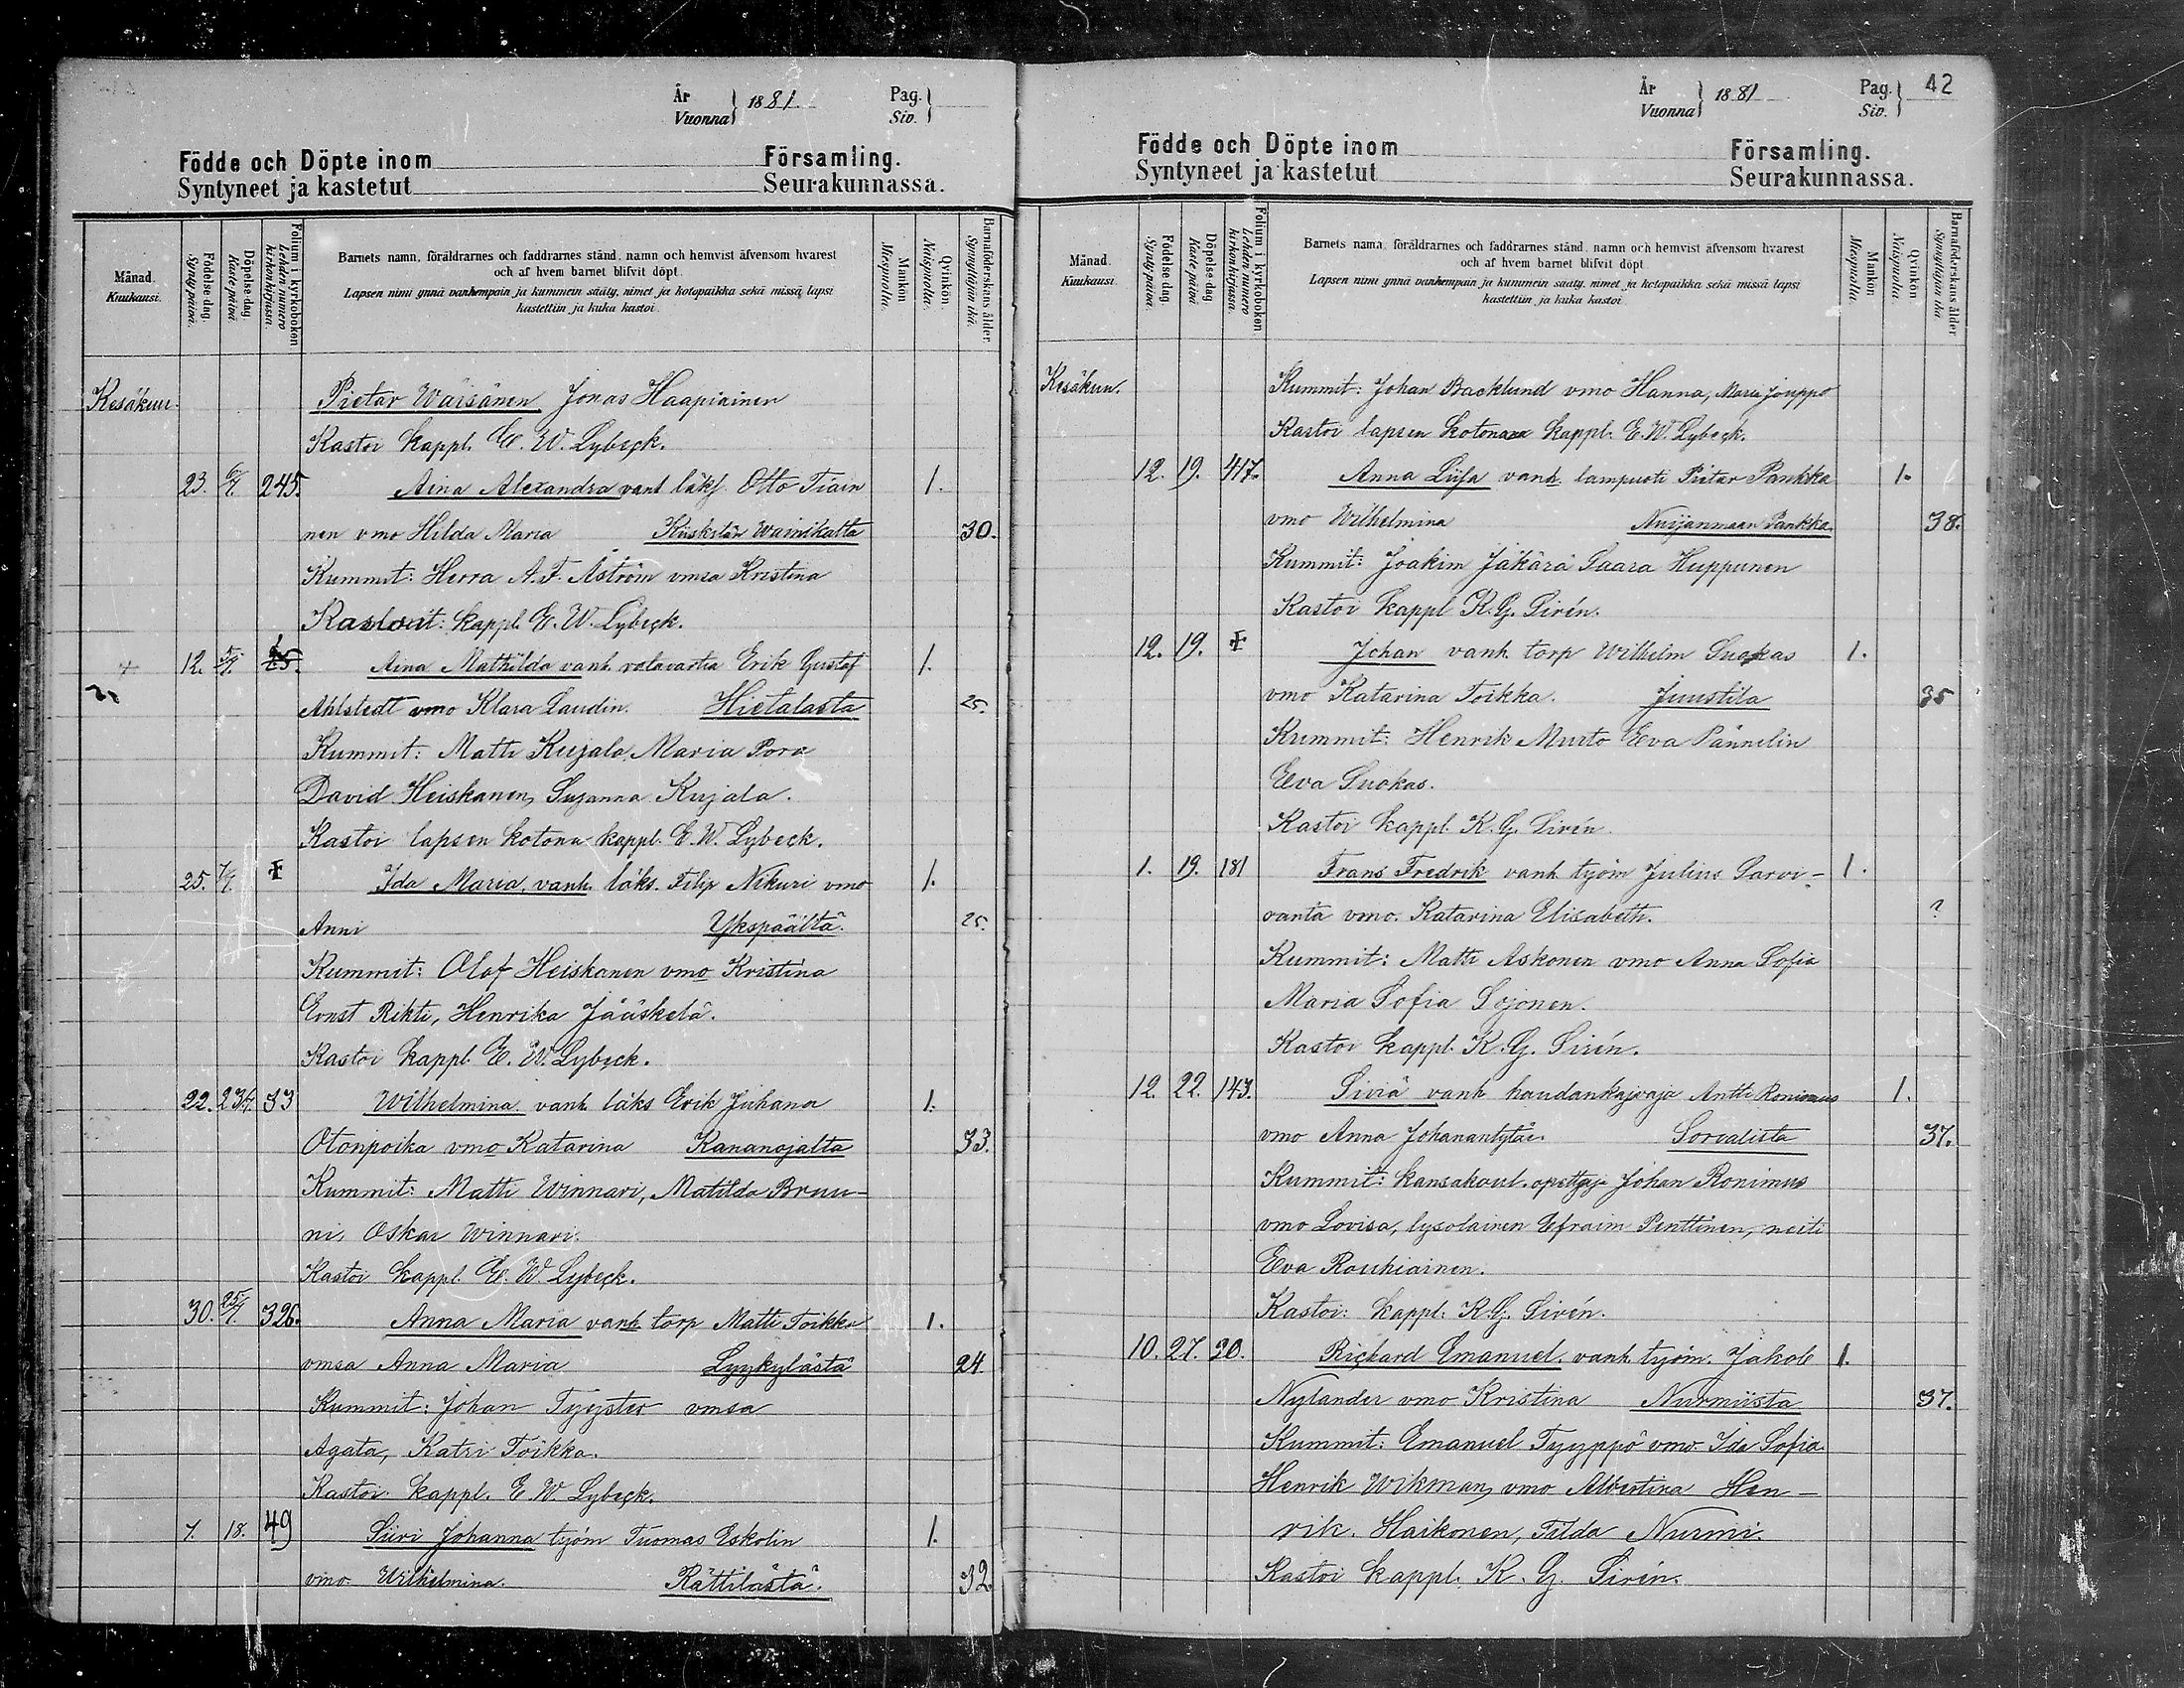 År Vuonna } 1881 Pag. Siv. }
Födde och Döpte inom Församling.
Syntyneet ja kastetut Seurakunnassa.
Månad. Kuukausi.
Födelse dag. Synty päivä.
Döpelse dag. Kaste päivä
Folium i kyrkoboken Lehden numero kirkonkirjassa.
Barnets namn, föräldrarnes och faddrarnes stånd, namn och hemvist äfvensom hvarest
och af hvem barnet blifvit döpt.
Lapsen nimi ynnä vanhempain ja kummein sääty, nimet ja kotopaikka sekä missä lapsi
kastettiin ja kuka kastoi.
Mankön Miespuolta.
Qvinkön. Naispuolta.
Barnaföderskans ålder. Synnyttäjän ikä.
Kesäkuu. Pietar Wäisänen Jonas Haapiainen
Kastoi kappl. E. W. Lybeck.
23. 6/7. 245. Aina Alexandra vanh läks. Otto Tiain 1.
nen vmo Hilda Maria Kiiskilän Wainikatta 30.
Kummit: Herra A. F. Åström vmsa Kristina
Kastoi: kappl. E. W. Lybeck.
12. 5/7. Aina Mathilda vanh. valavartia Erik Gustaf 1.
Ahlstedt vmo Klara Laudin. Hietalasta 25.
Kummit: Matti Kujala, Maria Pora
David Heiskanen, Suzanna Kujala.
Kastoi lapsen kotona kappl. E. W. Lybeck.
25. 7/7. Ida Maria, vanh. läks. Filip Nikuri vmo 1.
Anni Ykspäältä 25.
Kummit: Olof Heiskanen vmo Kristina
Ernst Rikti, Henrika Jääskelä.
Kastoi kappl. E. W. Lybeck.
22. 23/7. 33 Wilhelmina vanh. läks Erik Juhana 1.
Otonpoika vmo Katarina Kananojalta 33.
Kummit: Matti Winnari, Matilda Bruu-
ni, Oskar Winnari.
Kastoi kappl. E. W. Lybeck.
30. 25/7. 326. Anna Maria vanh torp Matti Toikka 1.
vmsa Anna Maria Lyykylästä 24
Kummit: Johan Tyyster vmsa
Agata, Katri Toikka.
Kastoi kappl. E. W. Lybeck.
7. 18. 49 Siiri Johanna työm Tuomas Eskolin 1.
vmo Wilhelmina. Rättilästä. 32.
År Vuonna } 1881 Pag. Siv. } 42
Födde och Döpte inom Församling.
Syntyneet ja kastetut Seurakunnassa.
Månad. Kuukausi.
Födelse dag. Synty päivä.
Döpelse dag Kaste päivä
Folium i kyrkoboken Lehden numero kirkonkirjassa.
Barnets namn, föräldrarnes och faddrarnes stånd, namn och hemvist äfvensom hvarest
och af hvem barnet blifvit döpt.
Lapsen nimi ynnä vanhempain ja kummein sääty, nimet ja kotopaikka sekä missä lapsi
kastettiin ja kuka kastoi.
Mankön Miespuolta.
Qvinkön Naispuolta.
Barnaföderskans ålder Synnyttäjän ikä
Kesäkuu. Kummit: Johan Backlund vmo Hanna, Maria Jouppo
Kastoi lapsen kotonaan kappl. E. W. Lybeck.
12. 19. 417. Anna Liisa vanh. lampuoti Pietar Pankka 1.
vmo Wilhelmina Nuijanmaan Pankka. 38.
Kummit: Joakim Jäkärä Saara Huppunen
Kastoi kappl K. G. Sirén.
12. 19. Johan vanh. torp Wilhelm Suokas 1.
vmo Katarina Toikka. Juustila 35
Kummit: Henrik Murto Eva Pännelin
Eva Suokas.
Kastoi kappl. K. G. Sirén.
1. 19. 181 Frans Fredrik vanh työm Julius Sarvi- 1.
ranta vmo. Katarina Elisabeth. ?
Kummit: Matti Askonen vmo Anna Sofia
Maria Sofia Sojonen.
Kastoi kappl. K. G. Sirén.
12. 22. 143. Siviä vanh haudankaivaja Antti Ronimus 1.
vmo Anna Johanantytär Sorvalista 37.
Kummit: kansakoul. opettaja Johan Ronimus
vmo Lovisa, lysolainen Efraim Penttinen, neiti
Eva Rouhiainen.
Kastoi: kappl. K. G. Sirén.
10. 27. 20. Richard Emanuel, vanh. työm. Jakob 1.
Nylander vmo Kristina Nurmiista 37.
Kummit: Emanuel Tyyppö vmo. Ida Sofia
Henrik Wikman, vmo Albertina Hen-
rik. Haikonen, Tilda Nurmi.
Kastoi kappl. K. G. Sirén.